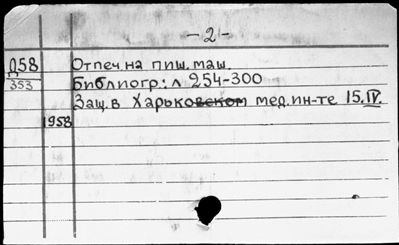 - 2 -
Д58
353
Отпеч. на пиш. маш.
Библиогр.: л 254-300
Защ. в Харьковском мед. ин-те 15.IV.
1958